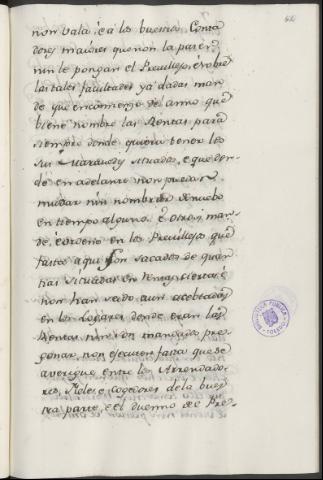 non vala, é a los buenos Conta
dores maiores que non la pasen
nin le pongan el Previllejo, é sobre
las tales facultades ya dadas man
dé que en comienzo de anno que
biene nombre las Rentas para
siempre donde quiera tener los
sus Maravedis situados, e que den
de en adelante non puedan
mudar nin nombrar de nuebo
en tiempo alguno: é otrosi, man
de, e ordene en los Previllejos que
fastas aqui son sacados de quan
tias situadas en Rentas ciertas é
non han seido aun acebtadas
en los Logares donde eran las
Rentas nin son mandados pre
gonar, non ejecuten fasta que se
averigue entre los Arrendado
res, Fieles e cogedores de la bues
tra parte, e el duenno de Pre-
BIBLIOTECA PUBLICA
TOLEDO